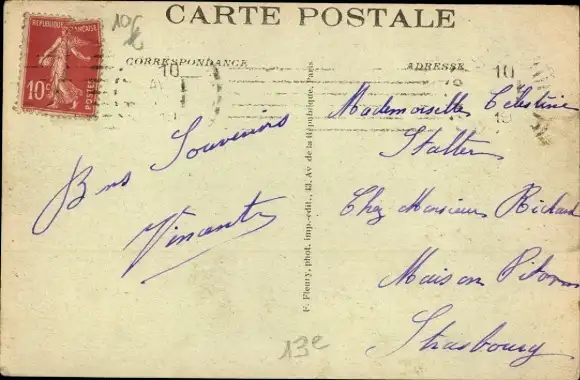 CARTE POSTALE
10f
REPUBLIQUE FRANÇAISE
10c
POSTES
CORRESPONDANCE
ADRESSE
10
10
Bons Souvenirs
Vincent
F. Fleury, phot. imp.-édit., 43, Av. de la République, Paris
Mademoiselle Celestine
Stalter
Chez Monsieur Richard
Maison
Strasbourg
13e